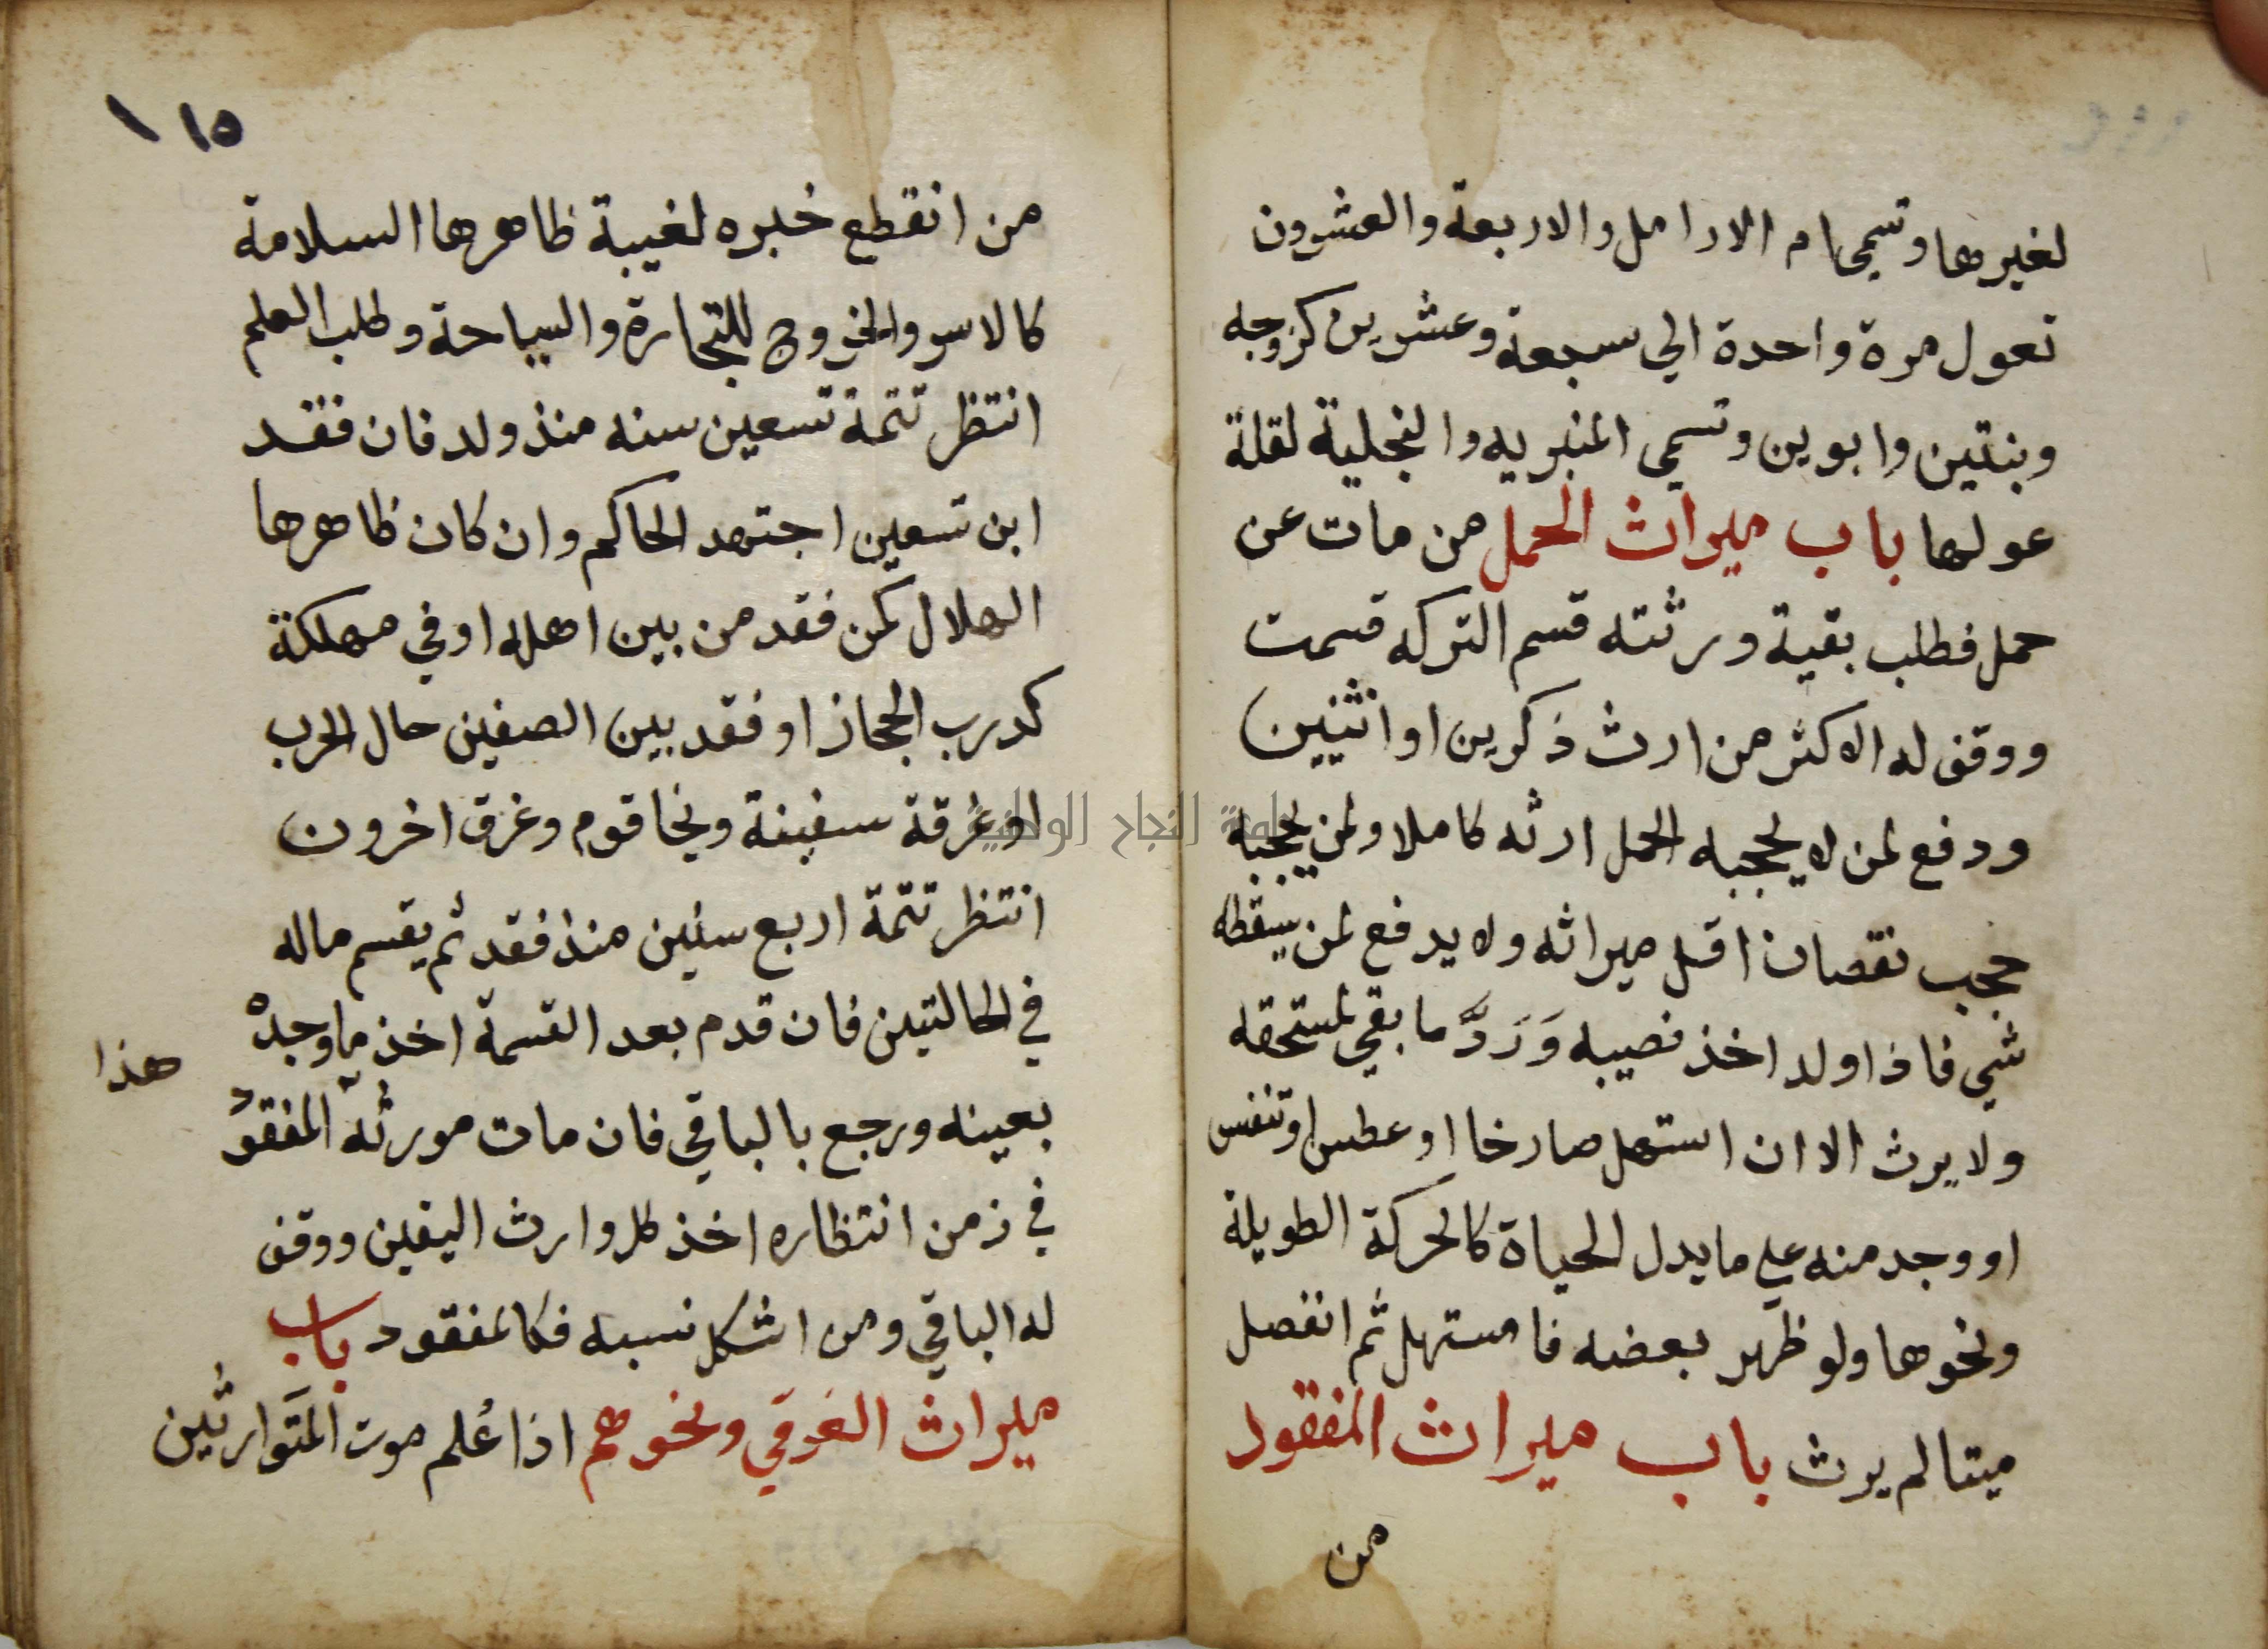 لغيرها وتسمى ام الارامل والاربعة والعشرون
تعول مرة واحدة الي سبعة وعشرين كزوجه
وبنتين وابوين وتسمي المنبريه والبخيلة لقلة
عولها باب ميراث الحمل من مات عن
حمل فطلب بقية ورثته قسم التركه قسمت
ووقف له الاكثر من ارث ذكرين او انثيين
ودفع لمن لا يحجبه الحمل ارثه كاملا ولمن يحجبه
حجب نقصان اقل ميراثه ولا يدفع لمن يسقطه
شي فاذا ولد اخذ نصيبه وَرَدَّ ما بقي لمستحقه
ولا يرث الا ان استهل صارخا او عطس او تنفس
او وجد منه علي ما يدل الحياة كالحركة الطويلة
ونحوها ولو ظهر بعضه فاستهل ثم انفصل
ميتا لم يرث باب ميراث المفقود
من
١١٥
من انقطع خبره لغيبة ظاهرها السلامة
كالاسر والخروج للتجارة والسياحة وطلب العلم
انتظر تتمة تسعين سنه منذ ولد فان فقد
ابن تسعين اجتهد الحاكم وان كان ظاهرها
الهلال كمن فقد من بين اهله او في مهلكة
كدرب الحجاز او فقد بين الصفين حال الحرب
او غرقة سفينة ونجا قوم وغرق اخرون
انتظر تتمة اربع سنين منذ فقد ثم يقسم ماله
في الحالتين فان قدم بعد القسمة اخذ ما وجده
هذا
بعينه ورجع بالباقي فان مات مورثه المفقود
في زمن انتظاره اخذ كل وارث اليقين ووقف
له الباقي ومن اشكل نسبه فكالمفقود باب
ميراث الغرقي ونحوهم اذا عُلم موت المتوارثين
جامعة النجاح الوطنية